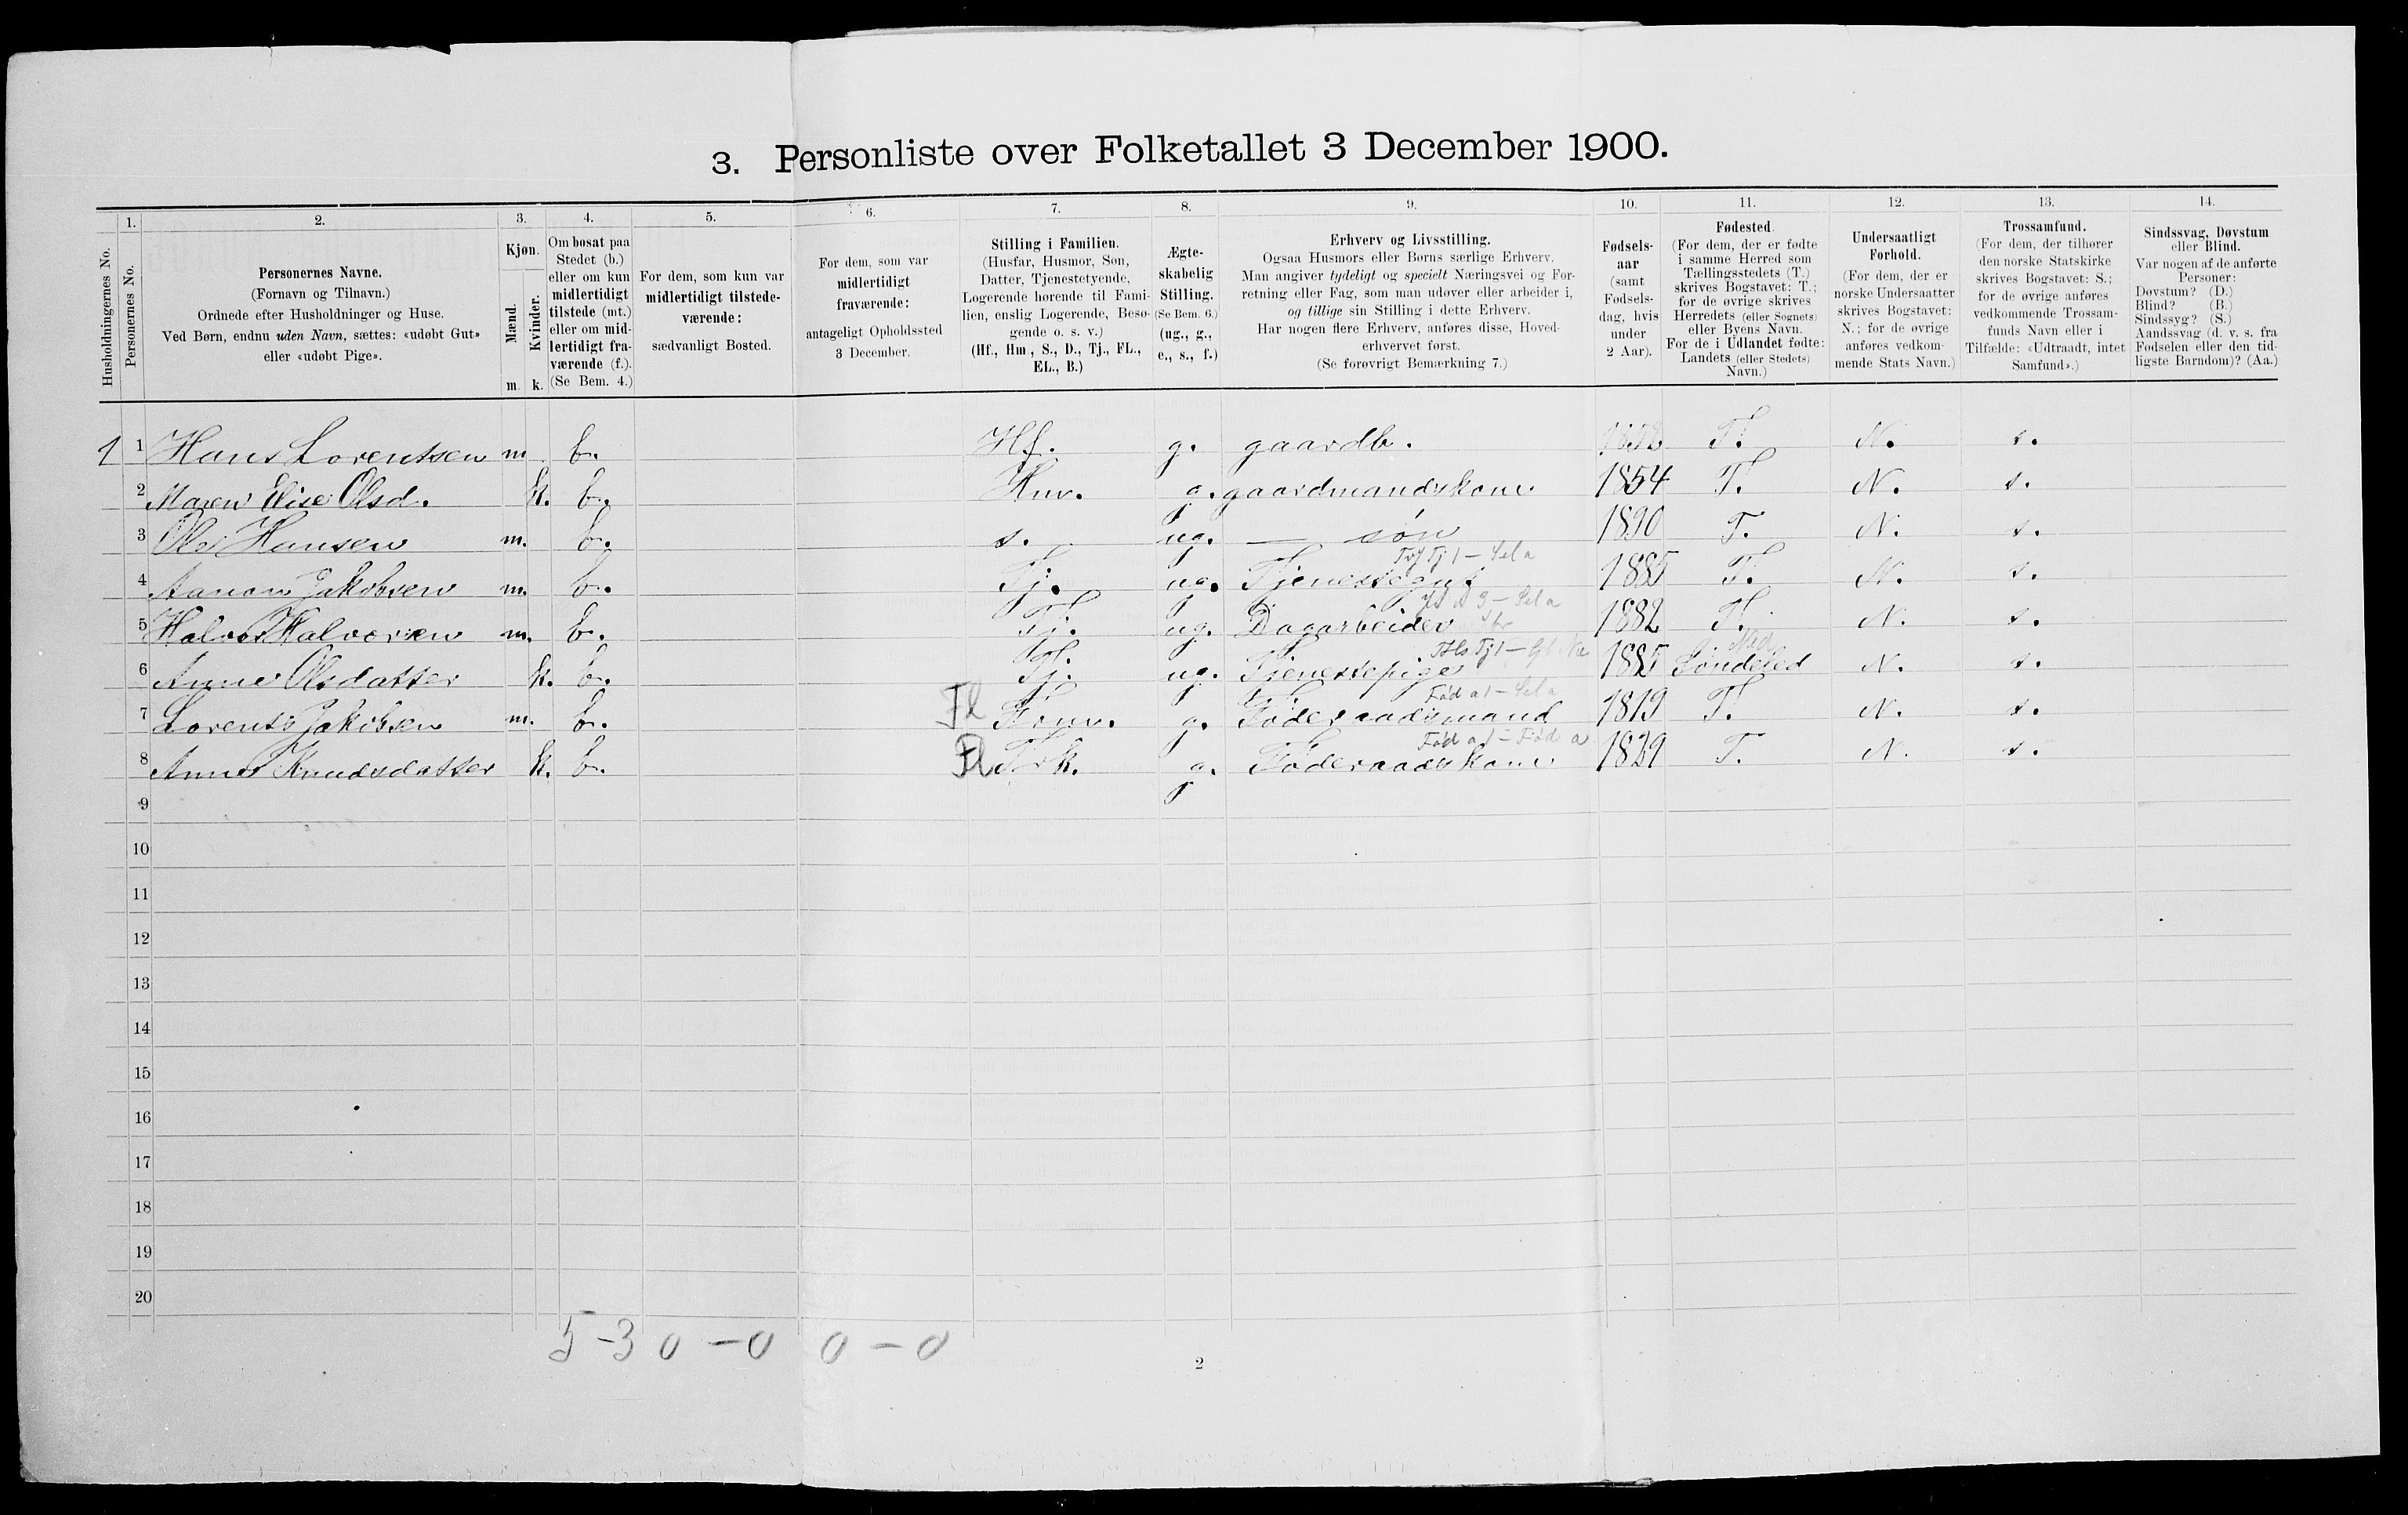 3. Personliste over Folketallet 3 December 1900.
Husholdningernes No.
1.
Personernes No.
2.
Personernes Navne.
(Fornavn og Tilnavn.)
Ordnede efter Husholdninger og Huse.
Ved Børn, endnu uden Navn, sættes: «udøbt Gut»
eller «udøbt Pige».
3.
Kjøn.
Mænd.
Kvinder.
m. k.
4.
Om bosat paa
Stedet (b.)
eller om kun
midlertidigt
tilstede (mt.)
eller om mid-
lertidigt fra-
værende (f.).
(Se Bem. 4.)
5.
For dem, som kun var
midlertidigt tilstede-
værende:
sædvanligt Bosted.
6.
For dem, som var
midlertidigt
fraværende:
antageligt Opholdssted
3 December.
7.
Stilling i Familien.
(Husfar, Husmor, Søn,
Datter, Tjenestetyende,
Logerende hørende til Fami-
lien, enslig Logerende, Besø-
gende o. s. v.)
(Hf., Hm., S., D., Tj., FL.,
EL., B.)
8.
Ægte-
skabelig
Stilling.
(Se Bem. 6.)
(ug., g.,
e., s., f.)
9.
Erhverv og Livsstilling.
Ogsaa Husmors eller Børns særlige Erhverv.
Man angiver tydeligt og specielt Næringsvei og For-
retning eller Fag, som man udøver eller arbeider i,
og tillige sin Stilling i dette Erhverv.
Har nogen flere Erhverv, anføres disse, Hoved-
erhvervet først.
(Se forøvrigt Bemærkning 7.)
10.
Fødsels-
aar
(samt
Fødsels-
dag, hvis
under
2 Aar).
11.
Fødested.
(For dem, der er fødte
i samme Herred som
Tællingsstedets (T.)
skrives Bogstavet: T.;
for de øvrige skrives
Herredets (eller Sognets)
eller Byens Navn.
For de i Udlandet fødte:
Landets (eller Stedets)
Navn.)
12.
Undersaatligt
Forhold.
(For dem, der er
norske Undersaatter
skrives Bogstavet:
N.; for de øvrige
anføres vedkom-
mende Stats Navn.)
13.
Trossamfund.
(For dem, der tilhører
den norske Statskirke
skrives Bogstavet: S.;
for de øvrige anføres
vedkommende Trossam-
funds Navn eller i
Tilfælde: «Udtraadt, intet
Samfund».)
14.
Sindssvag, Døvstum
eller Blind.
Var nogen af de anførte
Personer:
Døvstum? (D.)
Blind? (B.)
Sindssyg? (S.)
Aandssvag (d. v. s. fra
Fødselen eller den tid-
ligste Barndom)? (Aa.)
1 1 Hans Lorentsen m b. Hf. g. gaardb. T. N. s.
2 Maren Elise Olsd. k. b. Hm. g. gaardmandskone 1854 T. N. s.
3 Ole Hansen m. b. s. ug. — søn 1890 T. N. s.
4 Aanon Jakobsen m. b. Tj. ug. Tjenestegut 1885 T. N. s.
5 Halvor Halvorsen m. b. Tj. ug. Dagarbeider 1882 T. N. s.
6 Anne Olsdatter k. b. Tj. ug. Tjenestepige 1885 Søndeled N. s.
7 Lorents Jakobsen m. b. Fl g. Føderaadsmand 1819 T. N. s.
8 Anne Knudsdatter k. b. Fl g. Føderaadskone 1829 T. N. s.
9
10
11
12
13
14
15
16
17
18
19
20
5-3 0-0 0-0
2